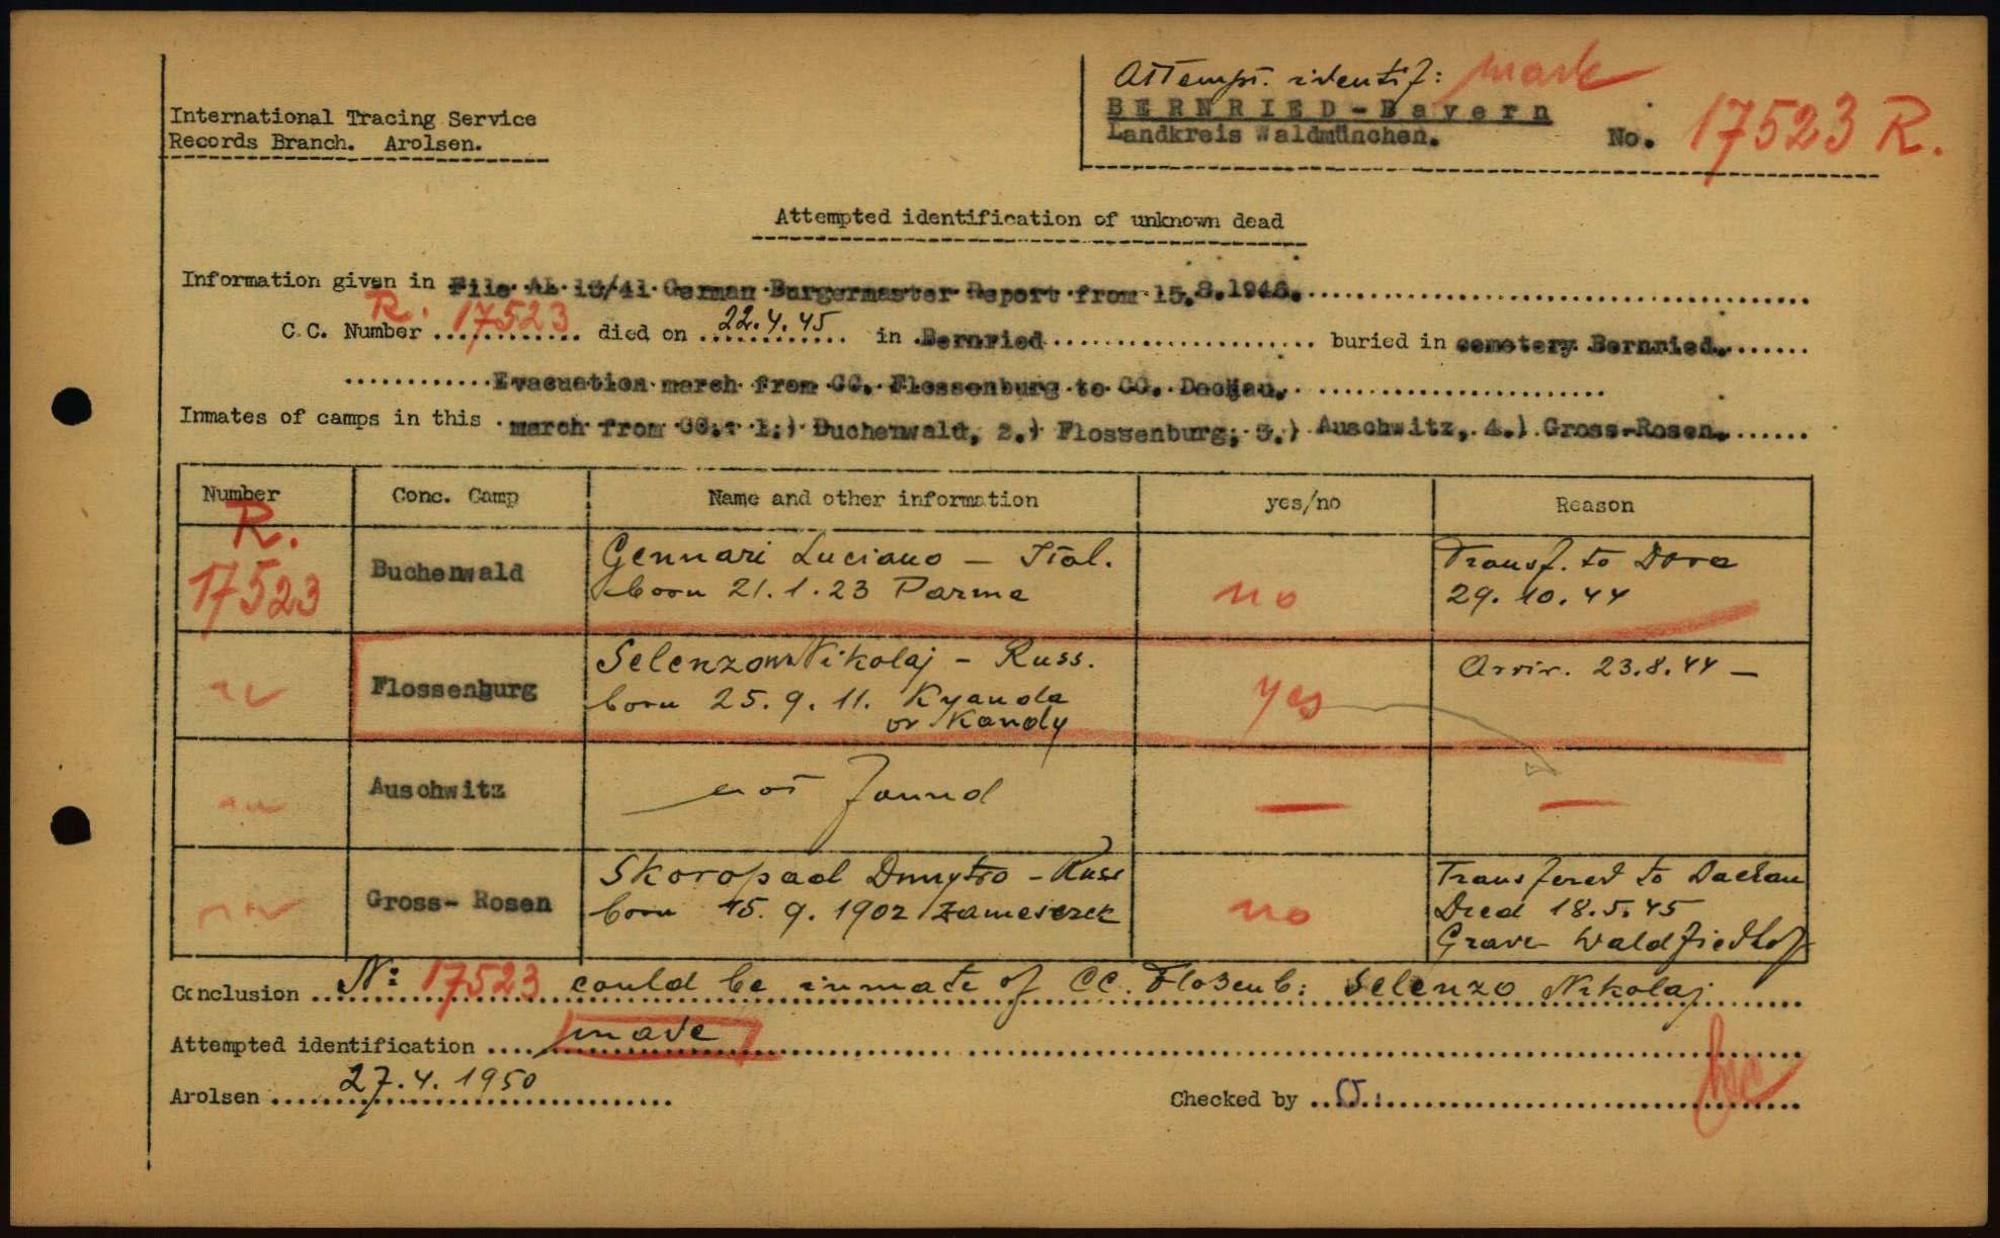 Attempt. identif: made
International Tracing Service
Records Branch. Arolsen.
BERNRIED-Bayern
Landkreis Waldmünchen. No. 17523 R.
Attempted identification of unknown dead
Information given in File German Burgermaster Report from 15.8.1946.
R.
C.C. Number 17523 died on 22.4.45 in Bernried buried in cemetery Bernried.
Evacuation march from CC. Flossenburg to CC. Dachau.
Inmates of camps in this march from CC.: 1.) Buchenwald, 2.) Flossenburg, 3.) Auschwitz, 4.) Gross-Rosen.
Number Conc. Camp Name and other information yes/no Reason
R.
17523 Buchenwald Gennari Luciano – Ital. no Transf. to Dora
born 21.1.23 Parma 29.10.44
Flossenburg Nikolaj – Russ. yes Arriv. 23.8.44 –
born 25.9.11. Kyanda
or Kandy
Auschwitz not found — —
Gross- Rosen Skoropad Dmytro – Russ no Transfered to Dachau
born 15.9.1902 Died 18.5.45
Grave Waldfiedhof
Conclusion No 17523 could be inmate of CC. Flosenb: Selenzo Nikolaj
Attempted identification made
Arolsen 27.4.1950 Checked by